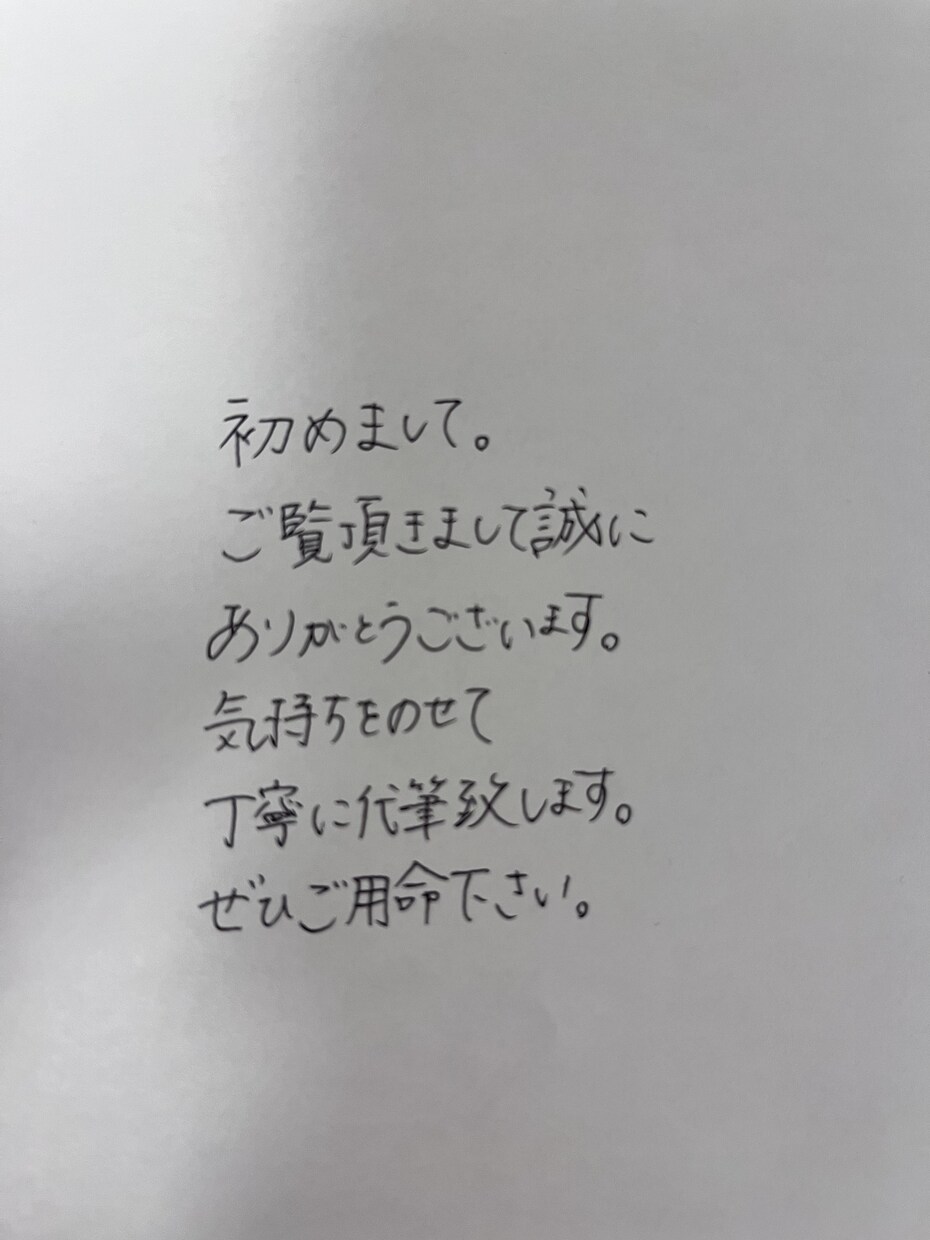 初めまして。
ご覧頂きまして誠に
ありがとうございます。
気持ちをのせて
丁寧に代筆致します。
ぜひご用命下さい。